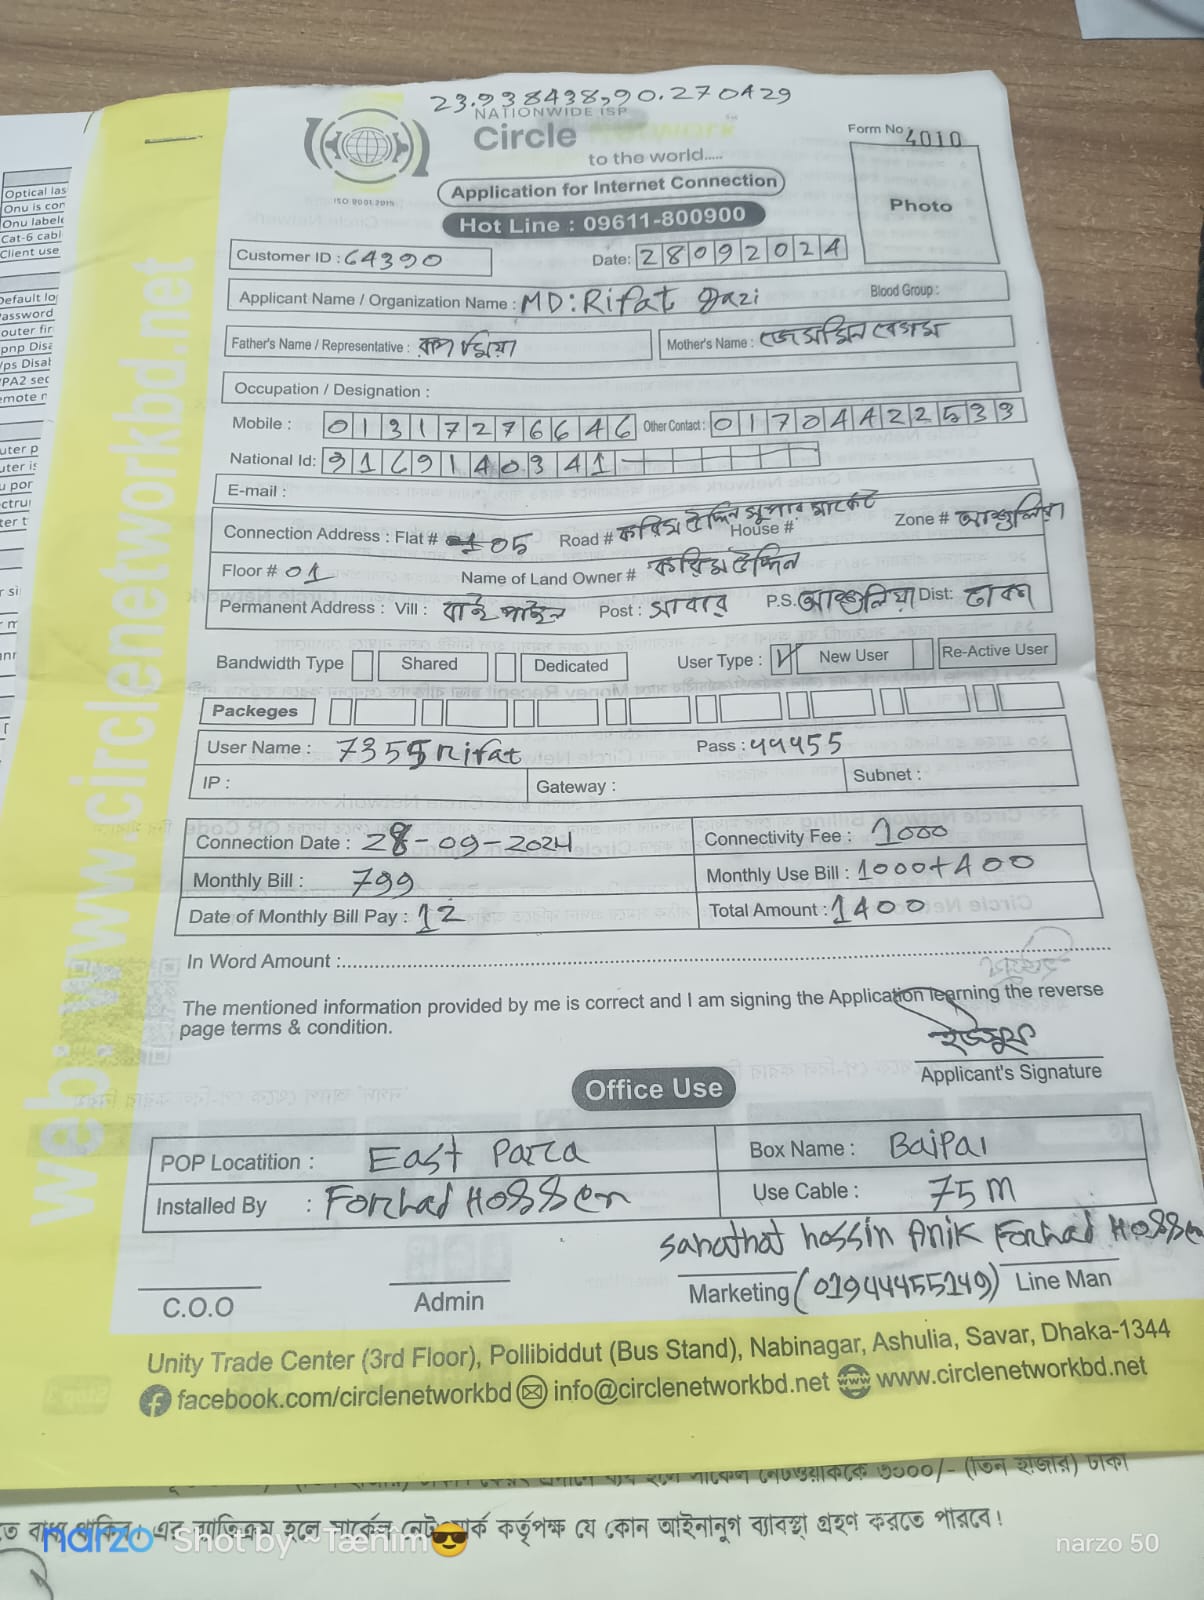 23.938438,90.270429
NATIONWIDE ISP
Circle
to the world.....
ISO 9001:2015
Form No 4010
Photo
Application for Internet Connection
Hot Line : 09611-800900
Customer ID : 64390 Date: 28092024
Applicant Name / Organization Name : MD: Rifat Gazi Blood Group :
Father's Name / Representative : মিয়া Mother's Name : জেসমিন বেগম
Occupation / Designation :
Mobile : 01317276646 Other Contact : 01704422533
National Id: 9169140341
E-mail :
Connection Address : Flat # 05 Road # করিম উদ্দিন সুপার মার্কেট House # Zone # আশুলিয়া
Floor # 01 Name of Land Owner # করিম উদ্দিন
Permanent Address : Vill : বাইপাইল Post : সাবার P.S. আশুলিয়া Dist: ঢাকা
Bandwidth Type Shared Dedicated User Type : New User Re-Active User
Packeges
User Name : 7355rifat Pass : 44455
IP : Gateway : Subnet :
Connection Date : 28-09-2024 Connectivity Fee : 1000
Monthly Bill : 799 Monthly Use Bill : 1000+400
Date of Monthly Bill Pay : 12 Total Amount : 1400
In Word Amount :
The mentioned information provided by me is correct and I am signing the Application learning the reverse
page terms & condition.
Applicant's Signature
Office Use
POP Locatition : East Parca Box Name : Baipai
Installed By : Forhad Hossen Use Cable : 75 M
Sanathat hossin Anik Forhad Hossen
C.O.O Admin Marketing (01944455149) Line Man
Unity Trade Center (3rd Floor), Pollibiddut (Bus Stand), Nabinagar, Ashulia, Savar, Dhaka-1344
facebook.com/circlenetworkbd info@circlenetworkbd.net www.circlenetworkbd.net
web: www.circlenetworkbd.net
৩০০০/- (তিন হাজার) টাকা
কর্তৃপক্ষ যে কোন আইনানুগ ব্যাবস্থা গ্রহণ করতে পারবে।
narzo Shot by ~Tæhîm narzo 50